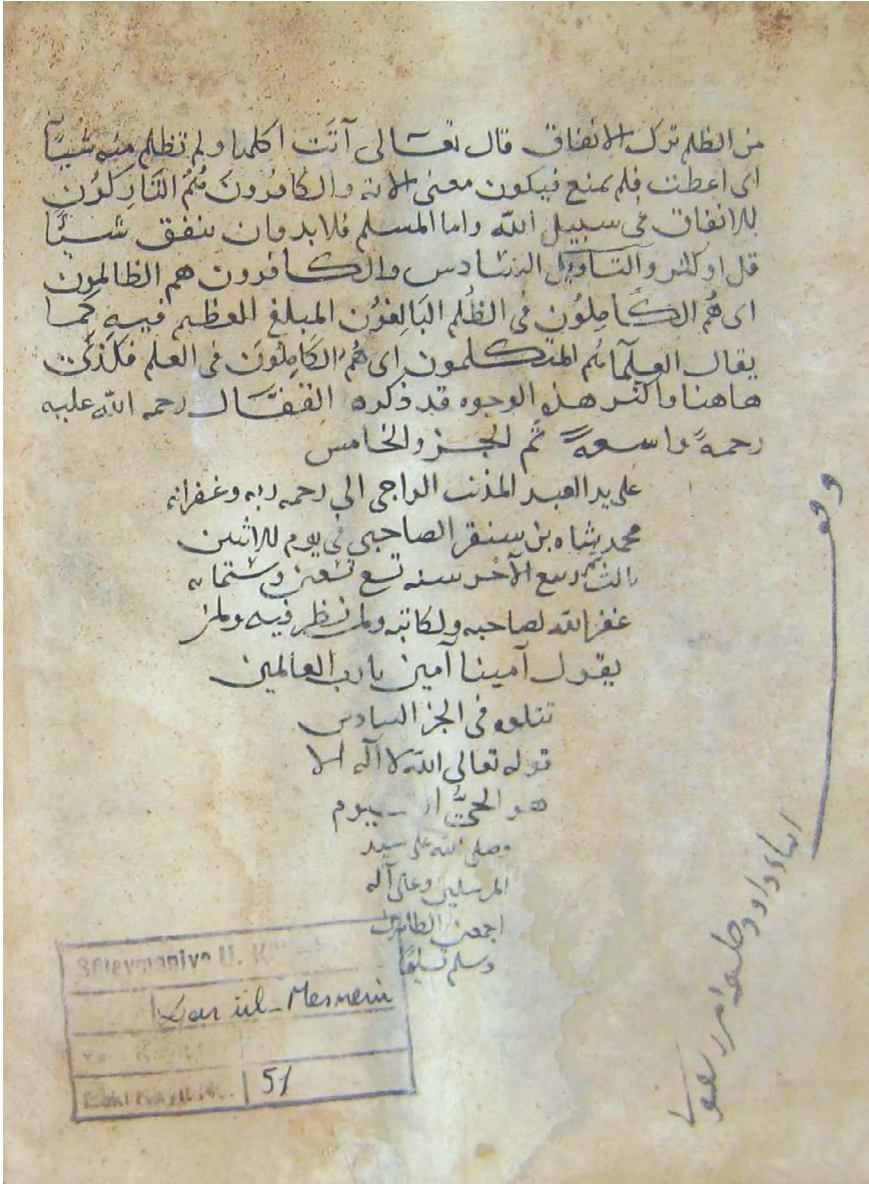 من الظلم ترك الانفاق قال تعالى آتَت اكلها ولم تظلم منه شيئاً
اى اعطت فلم تمنع فيكون معنى الاية والكافُرونَ هُمُ التَارِكُوُن
للانفاق فى سبيل الله واما المسلم فلابد وان ينفق شيئًا
قل او كثر والتاويل السادس والكافرون هم الظالمون
اى هُم الكَامِلُوُن فى الظُلم البَالِغوُن المبلغ العظيم فيه كما
يقال العلمآ هُم المتكلمون اى هُمُ الكَامِلُونَ فى العلم فكذلك
هاهنا واكثر هذه الوجوه قد ذكره القفَّال رحمه الله عليه
رحمهً واسعهً تَم الجزو الخامس
على يد العبد المذنب الراجى الى رحمه ربه وغفرانه
محمد شاه بن سنقر الصاحبي في يوم الاثنين
ثالث ربيع الآخر سنه تسع تسعين وستمايه
غفر الله لصاحبه ولكاتبه ولمن نظر فيه ولمن
يقول آمينا آمين يارب العالمين
تتلوه فى الجز السادس
قوله تعالى الله لا اله الا
هو الحيُّ ا ـيوم
وصلى الله على سيد
المرسلين وعلى آله
اجمعين الطاهرين
وسلم تسليمًا
وقف
داود
Süleymaniye U. K
Dar ül-Mesnevi
Kayıt
Eski Kayıt No. 51